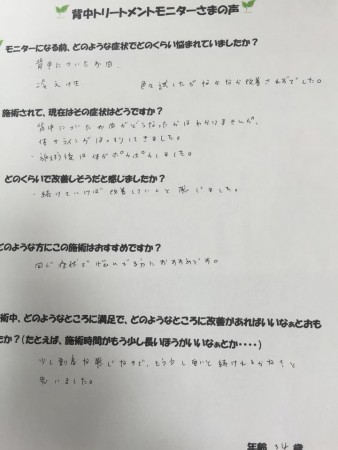 背中トリートメントモニターさまの声
モニターになる前、どのような症状でどのくらい悩まれていましたか?
背中についたお肉
冷え性 色々試したがなかなか改善されずでした。
施術されて、現在はその症状はどうですか?
背中についたお肉がどうなったかはわかりませんが、
体のラインがはっきりしてきました。
・施術後は体がポカポカしました。
どのくらいで改善しそうだと感じましたか?
・続けていけば改善していくと感じました。
どのような方にこの施術はおすすめですか?
同じ症状で悩んでる方におすすめです。
術中、どのようなところに満足で、どのようなところに改善があればいいなぁとおも
たか?(たとえば、施術時間がもう少し長いほうがいいなぁとか・・・・)
少し割高な感じなので、もう少し安いと続けれるかな?と
思いました。
年齢 34 歳